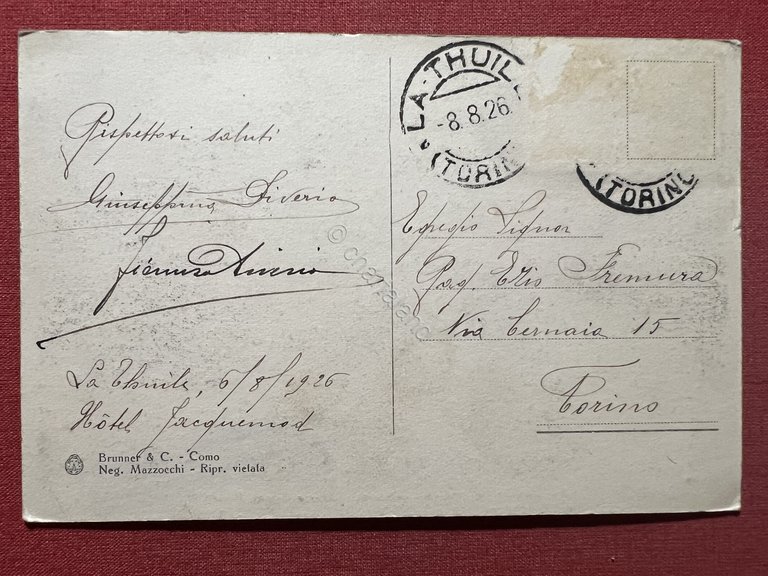 Rispettosi saluti
Giuseppina Diverio
Diverio
La Thuile, 6/8/1926
Hôtel Jacquemod
Brunner & C. - Como
Neg. Mazzocchi - Ripr. vietata
LA-THUIL
-8.8.26.
(TORIN
(TORINO
Egregio Signor
Rag. Ezio Fremura
Via Cernaia 15
Torino